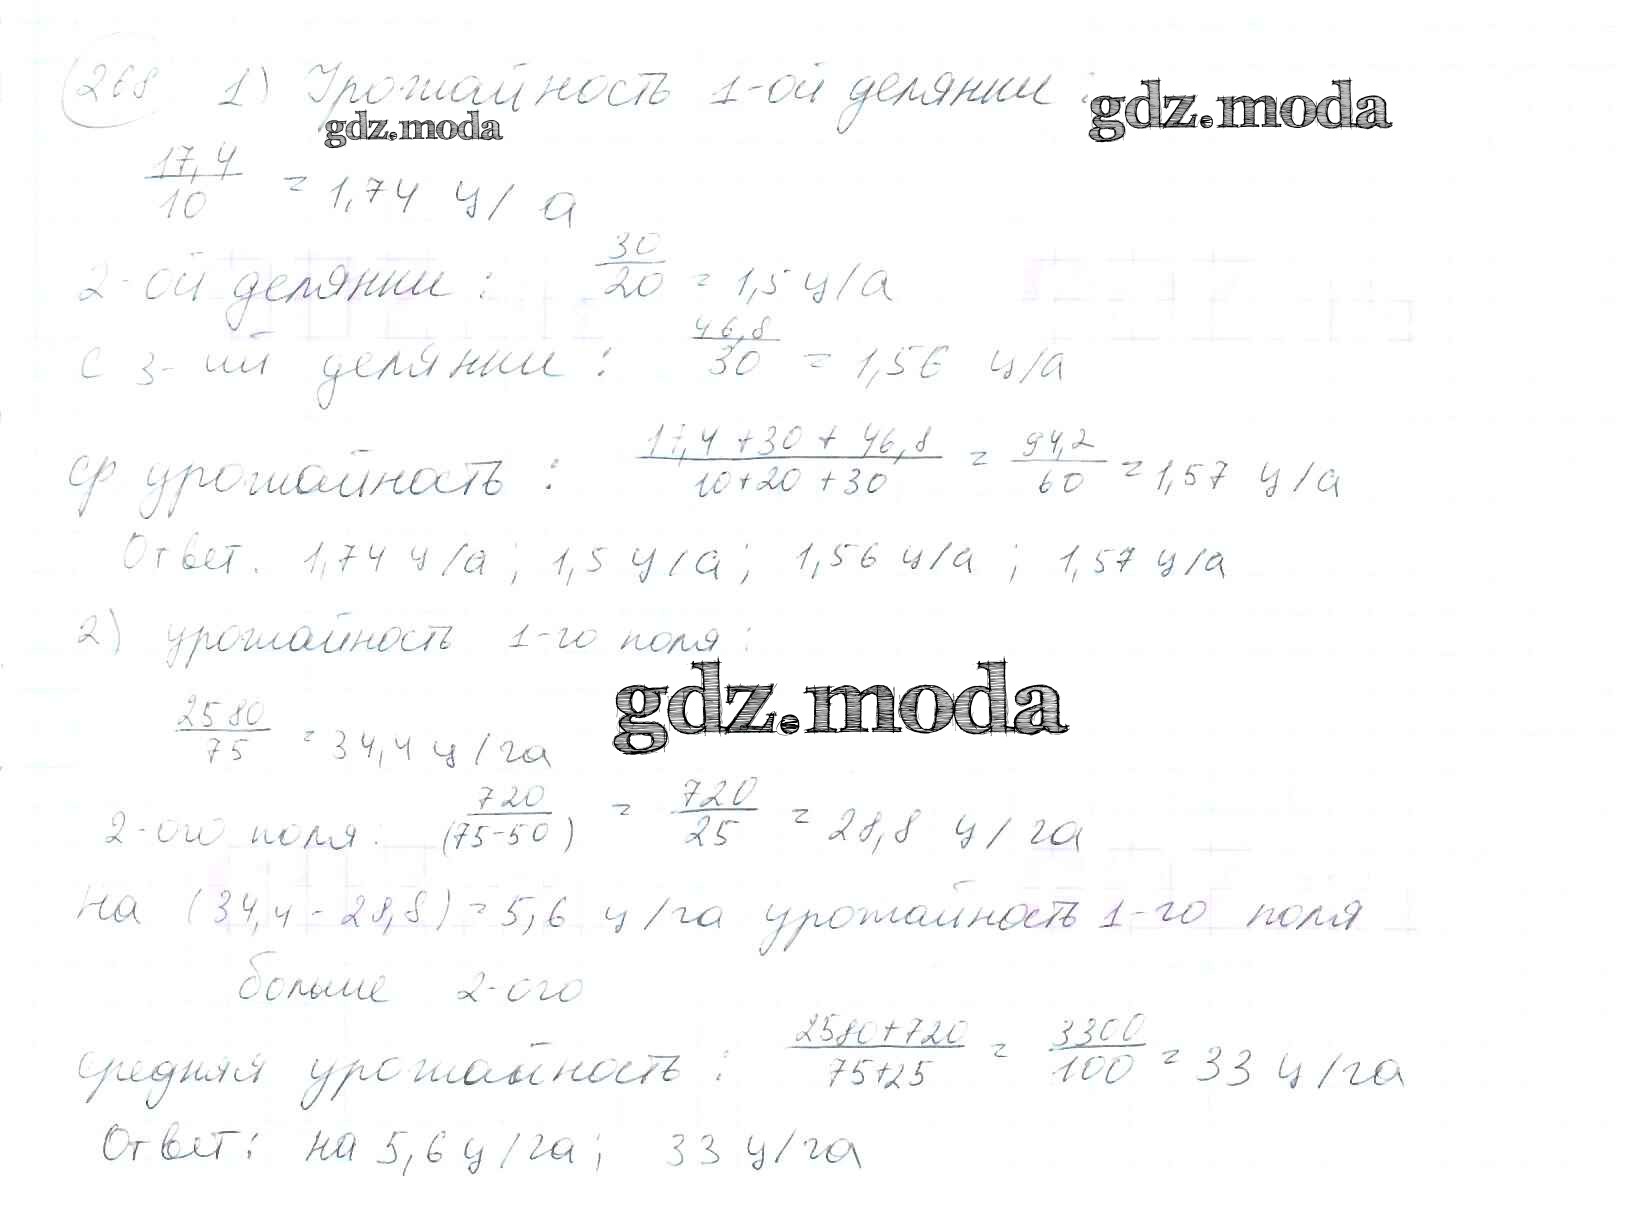 268 1) Урожайность 1-ой делянки :
gdz.moda
gdz.moda
17,4/10 = 1,74 ц/а
2-ой делянки : 30/20 = 1,5 ц/а
с 3-ий делянки : 46,8/30 = 1,56 ц/а
ср урожайность : (17,4 + 30 + 46,8)/(10+20+30) = 94,2/60 = 1,57 ц/а
Ответ. 1,74 ц/а ; 1,5 ц/а ; 1,56 ц/а ; 1,57 ц/а
2) урожайность 1-го поля :
gdz.moda
2580/75 = 34,4 ц/га
2-ого поля : 720/(75-50) = 720/25 = 28,8 ц/га
На (34,4 - 28,8) = 5,6 ц/га урожайность 1-го поля
больше 2-ого
средняя урожайность : (2580+720)/(75+25) = 3300/100 = 33 ц/га
Ответ : на 5,6 ц/га ; 33 ц/га